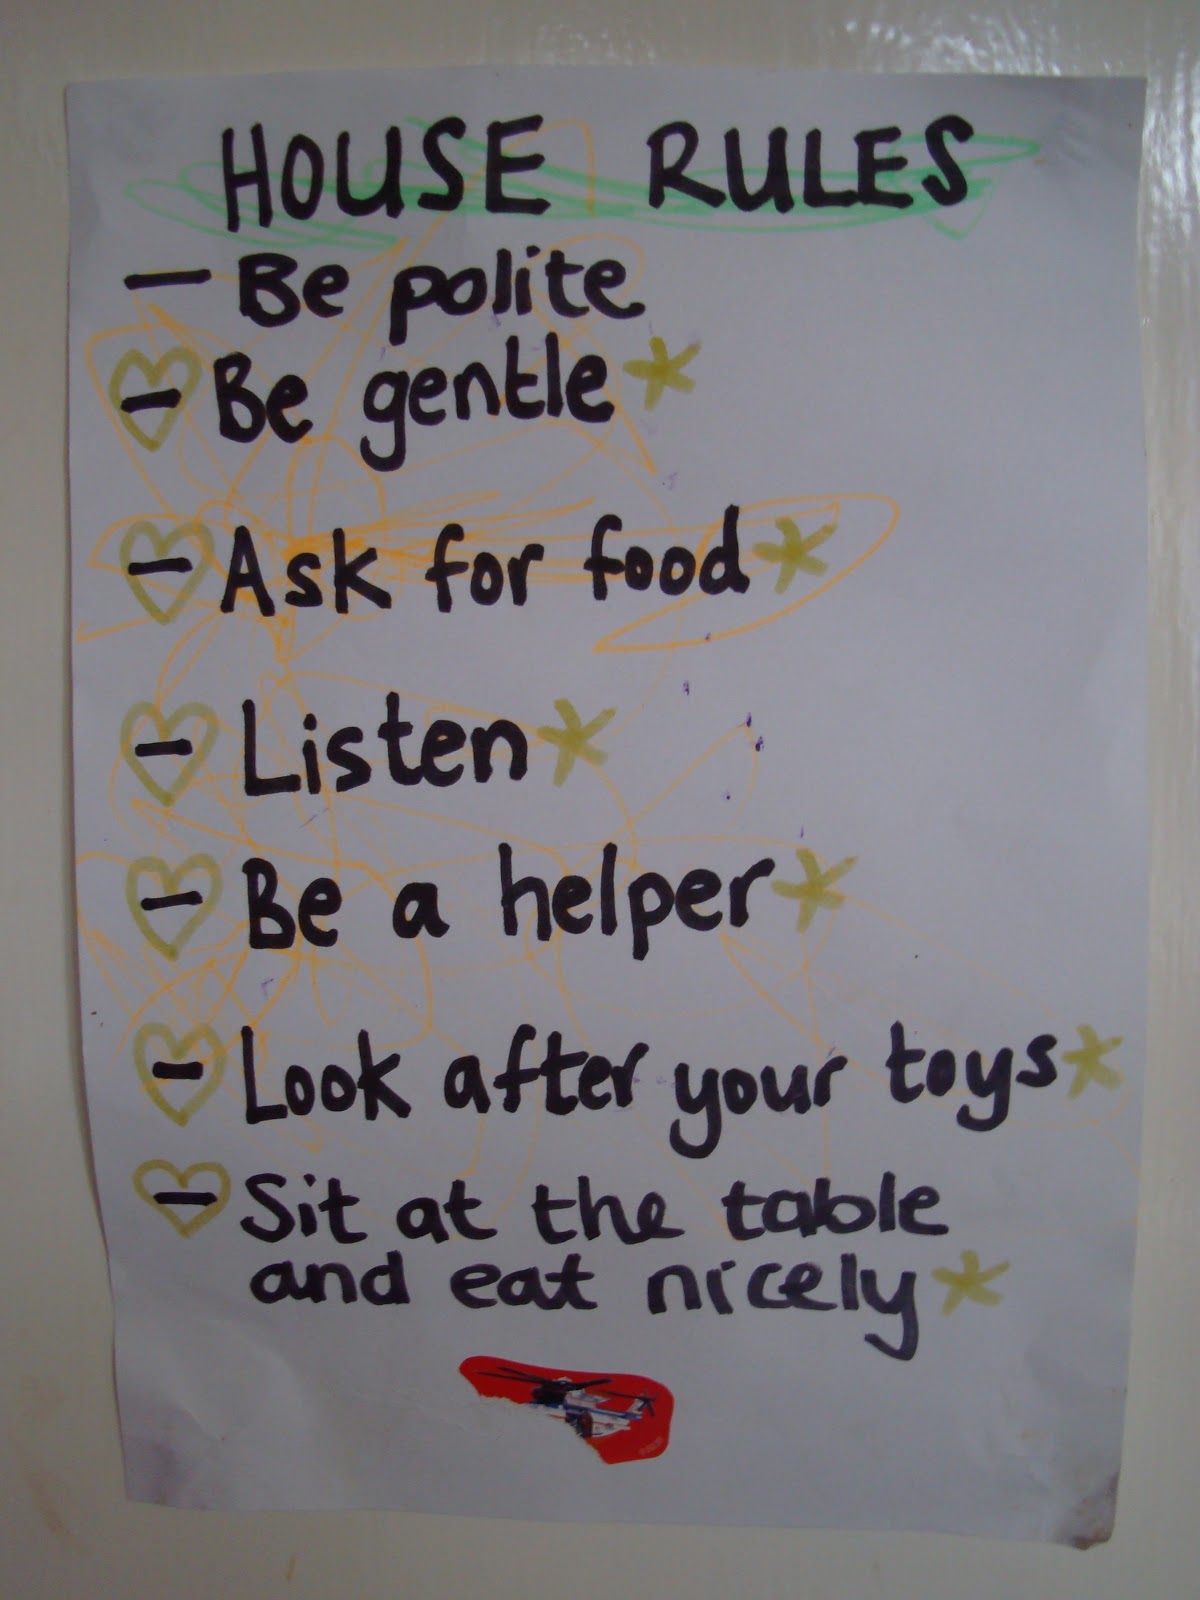 HOUSE RULES
- Be polite
- Be gentle
- Ask for food
- Listen
- Be a helper
- Look after your toys
- Sit at the table
and eat nicely